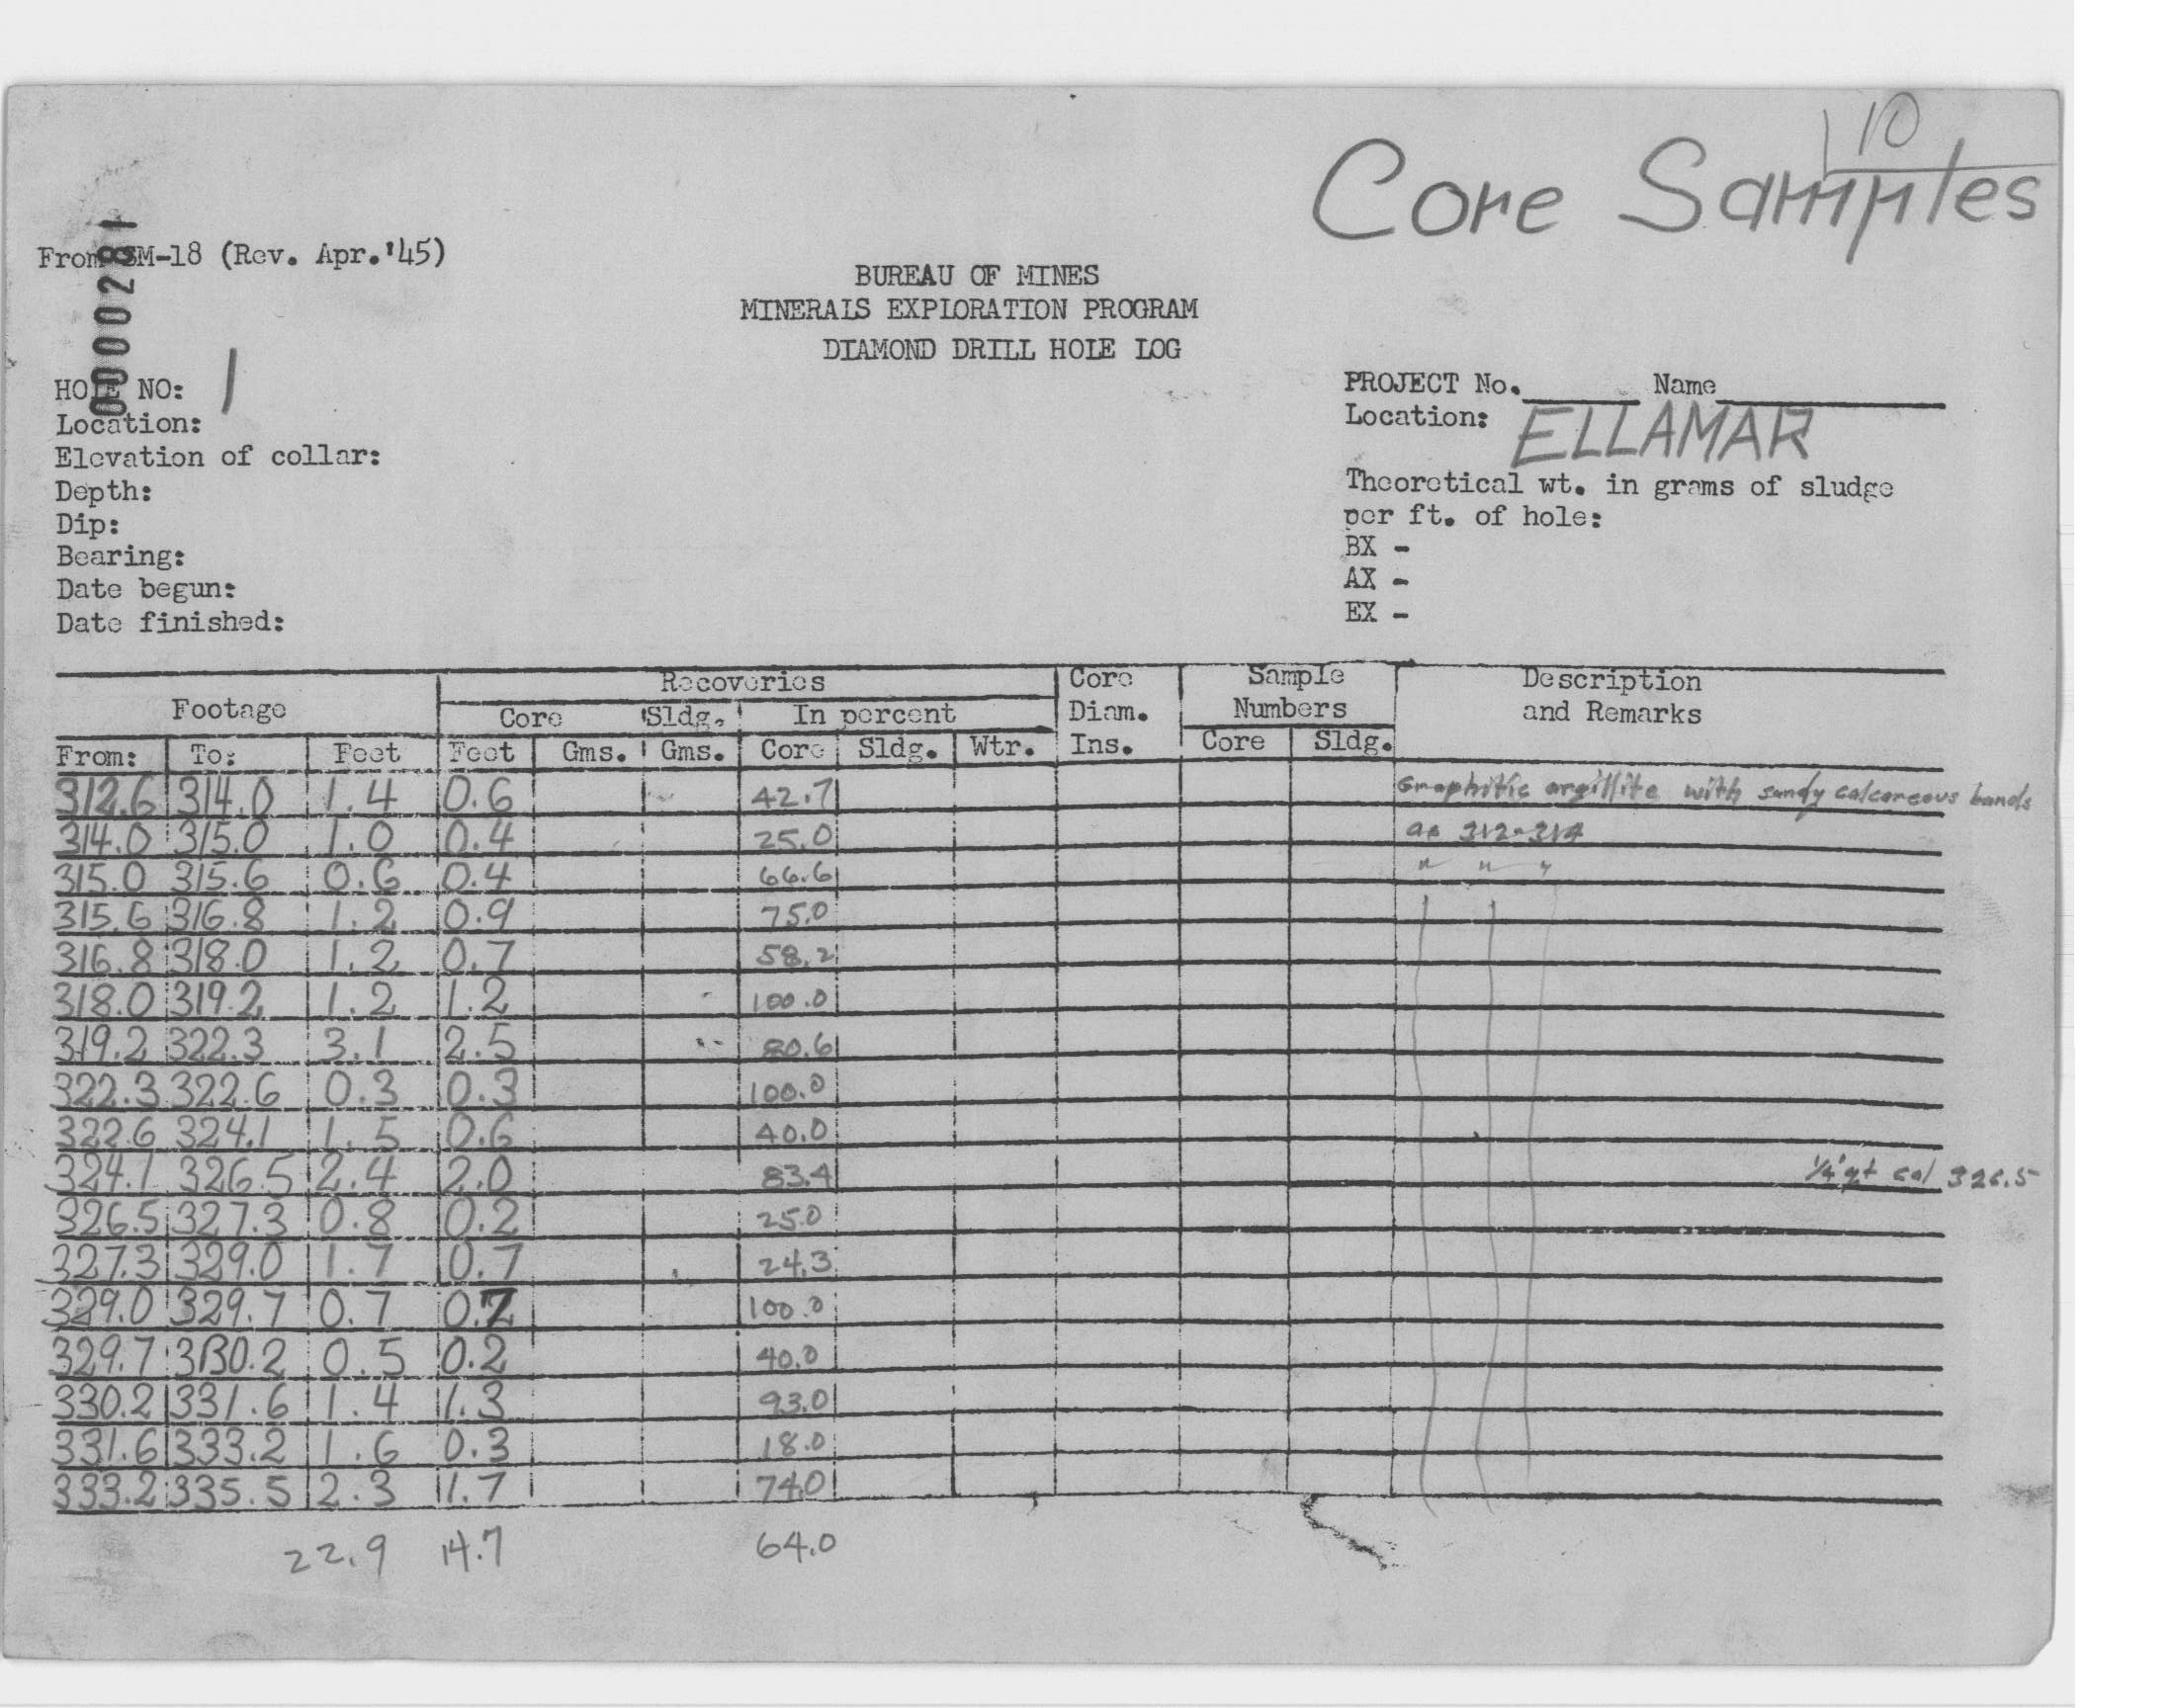 10
Core Samples
00000281
From SM-18 (Rev. Apr. '45)
BUREAU OF MINES
MINERALS EXPLORATION PROGRAM
DIAMOND DRILL HOLE LOG
HOLE NO: 1
Location:
Elevation of collar:
Depth:
Dip:
Bearing:
Date begun:
Date finished:
PROJECT No. Name
Location: ELLAMAR
Theoretical wt. in grams of sludge
per ft. of hole:
BX -
AX -
EX -
Footage Recoveries Core Diam. Ins. Sample Numbers Description and Remarks
Core Sldg. In percent
From: To: Feet Feet Gms. Gms. Core Sldg. Wtr. Core Sldg.
312.6 314.0 1.4 0.6 42.7 Graphitic argillite with sandy calcareous bands
314.0 315.0 1.0 0.4 25.0 as 312-314
315.0 315.6 0.6 0.4 66.6 " " "
315.6 316.8 1.2 0.9 75.0
316.8 318.0 1.2 0.7 58.2
318.0 319.2 1.2 1.2 100.0
319.2 322.3 3.1 2.5 80.6
322.3 322.6 0.3 0.3 100.0
322.6 324.1 1.5 0.6 40.0
324.1 326.5 2.4 2.0 83.4 1/4" qt cal 326.5
326.5 327.3 0.8 0.2 25.0
327.3 329.0 1.7 0.7 24.3
329.0 329.7 0.7 0.7 100.0
329.7 330.2 0.5 0.2 40.0
330.2 331.6 1.4 1.3 93.0
331.6 333.2 1.6 0.3 18.0
333.2 335.5 2.3 1.7 74.0
22.9 14.7 64.0